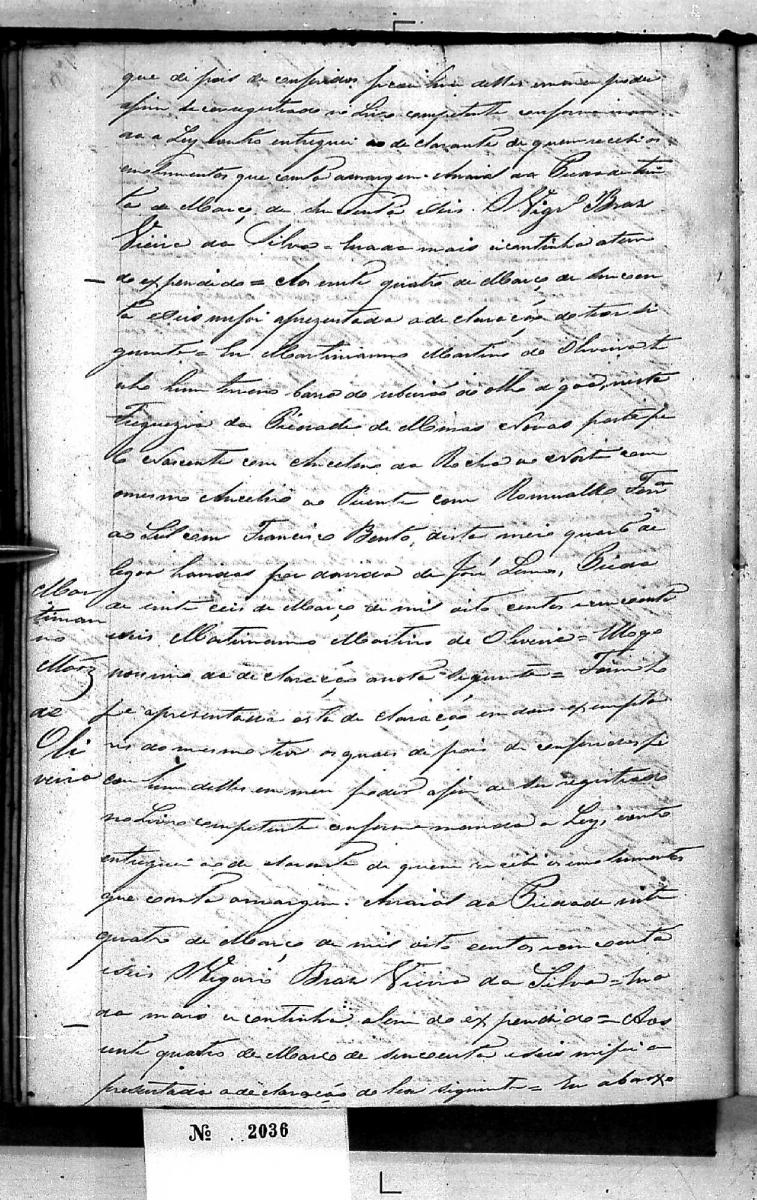 que de pois de conferidos ficou hum delles em meu poder
afim de ser registrado no Livro competente conforme man
da a Ley, eoutro entreguei ao de clarante de quem recebi os
emolumentos que consta amargem. Arraial da Piedade trin
ta de Março de sincoenta eseis. O Vigrº Braz
Vieira da Silva = Enada mais econtinha alem
do expendido = Aos vinte quatro de Março de sincoen
ta eseis mefoi aprezentada adeclaração do theor si
guinte = Eu Martinianno Martins de Oliveira te
nho hum terreno no de olho d'goa, nesta
Freguezia da Piedade de Minas Novas, parte pe
lo Nascente com Ancelmo da Rocha ao Norte com
omesmo Ancelmo ao Puente com Romualdo
ao Sul com Francisco Bento, dista meio quarto de
legoa havidas por de José Pieda
de vinte eseis de Março de mil oito centos ecincoenta
eseis Martinianno Martins de Oliveira =
da de claração anota siguinte = Foimih
apresentada esta de claração em dous exempla
res do mesmo teor os quais de pois de conferidos fi
cou hum delles em meu poder afim de ser registrado
no Livro competente conforme manda a Ley, eoutro
entreguei ao de clarante de quem recebi os emolumentos
que consta amargem. Arraial da Piedade vinte
quatro de Março de mil oito centos ecincoenta
eseis O Vigario Braz Vieira da Silva = Ena
da mais econtinha alem do expendido = Aos
vinte quatro de Março de sincoenta eseis mefoi a
presentada adeclaração do teor siguinte = Eu abaixo
Mar
tinian
no
Marz
de
Oli
veira
Nº 2036